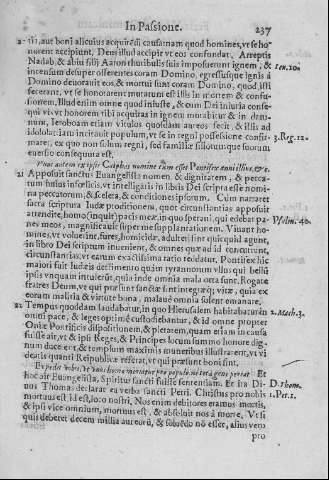 In Passione. 237
isi, aut boni alicuius acquirēdi causa, nam quod homines, vt se ho
norent accipiunt, Deus illud accipit vt eos confundat. Arreptis
Nadab, & abiu filij Aaron thuribulis suis imposuerunt ignem, &
incensum desuper offerentes coram Domino, egressusque ignis à Leu. 10.
Domino deuorauit eos, & mortui sunt coram Domino, quod isti
fecerant, vt se honorarent mutatum est illis in mortem & confu
sionem, Illud enim omne quod iniuste, & cum Dei iniuria conse-
qui vis vt honorem tibi acquiras in ignem morabitur & in dam-
num, Ieroboam etiam vitulos quosdam aureos fecit & illis ad
idololatriam incitauit populum, vt se in regni possessione consir-
maret, ex quo non solum regni, sed familiæ filiorumque suorum 3. Reg. 12.
euersio consequuta est.
21 Apposuit sanctus Euangelista nomen & dignitatem, & pecca-
tum huius infœlicis, vt intelligaris in libris Dei scripta esse nomi-
na peccatorum, & scelera, & conditiones ipsorum. Cum narraret
sacra scriptura Iudæ proditionem, quot circunstantias apposuit
attendite, homo (inquit) pacis meæ, in quo speraui, qui edebat pa- Psalm. 40.
nes meos, magnificauit super me supplantationem. Viuant ho-
mines, vt volue int, fures, homicidæ, adulteri sint quicquid agunt,
in libro Dei scriptum inuenient, & omnes quæ ad id concurrunt,
circunstantias, vt earum exactissima ratio reddatur. Pontifex hic
maiori fuit Iudæis detrimento quàm tyrannorum vllus qui bellū
ipsis vnquam intulerit, quia inde omnia mala orta sunt. Rogate
fratres Deum, vt qui præsunt sanctæ sint integræq; vitæ, quia ex
eorum malitia & virtute bona, malaue omnia solent emanare.
22 Tempus quoddam laudabatur, in quo Hierusalem habitabatur in
omni pace, & leges optimè custodiebantur, & id omne propter 2. Mach. 3.
Oniæ Pontificis dispositionem, & pietatem, quam etiam in causa
fuisse ait, vt & ipsi Reges, & Principes locum summo honore dig-
num ducerent, & templum maximis muneribus illustrarent, vt vi
deatis quanti Reipublicæ referat, vt qui præsunt boni sint.
Expedit vobis, vt vnus homo moriatur pro populo ne tota gens pereat
Et hoc ait Euangelista, Spiritus sancti fuisse sententiam. Et ita Di- D. Thom.
uus Thomas declarat ea verba sancti Petri. Christus pro nobis 1. Pet. 1.
mortuus est id est, loco nostri, Nos enim debitores eramus mortis,
& ipse vice omnium, mortuus est, & absoluit nos à morte, Vt si
quis deberet decem millia aureorū, & subito nō esset, alius vero
pro